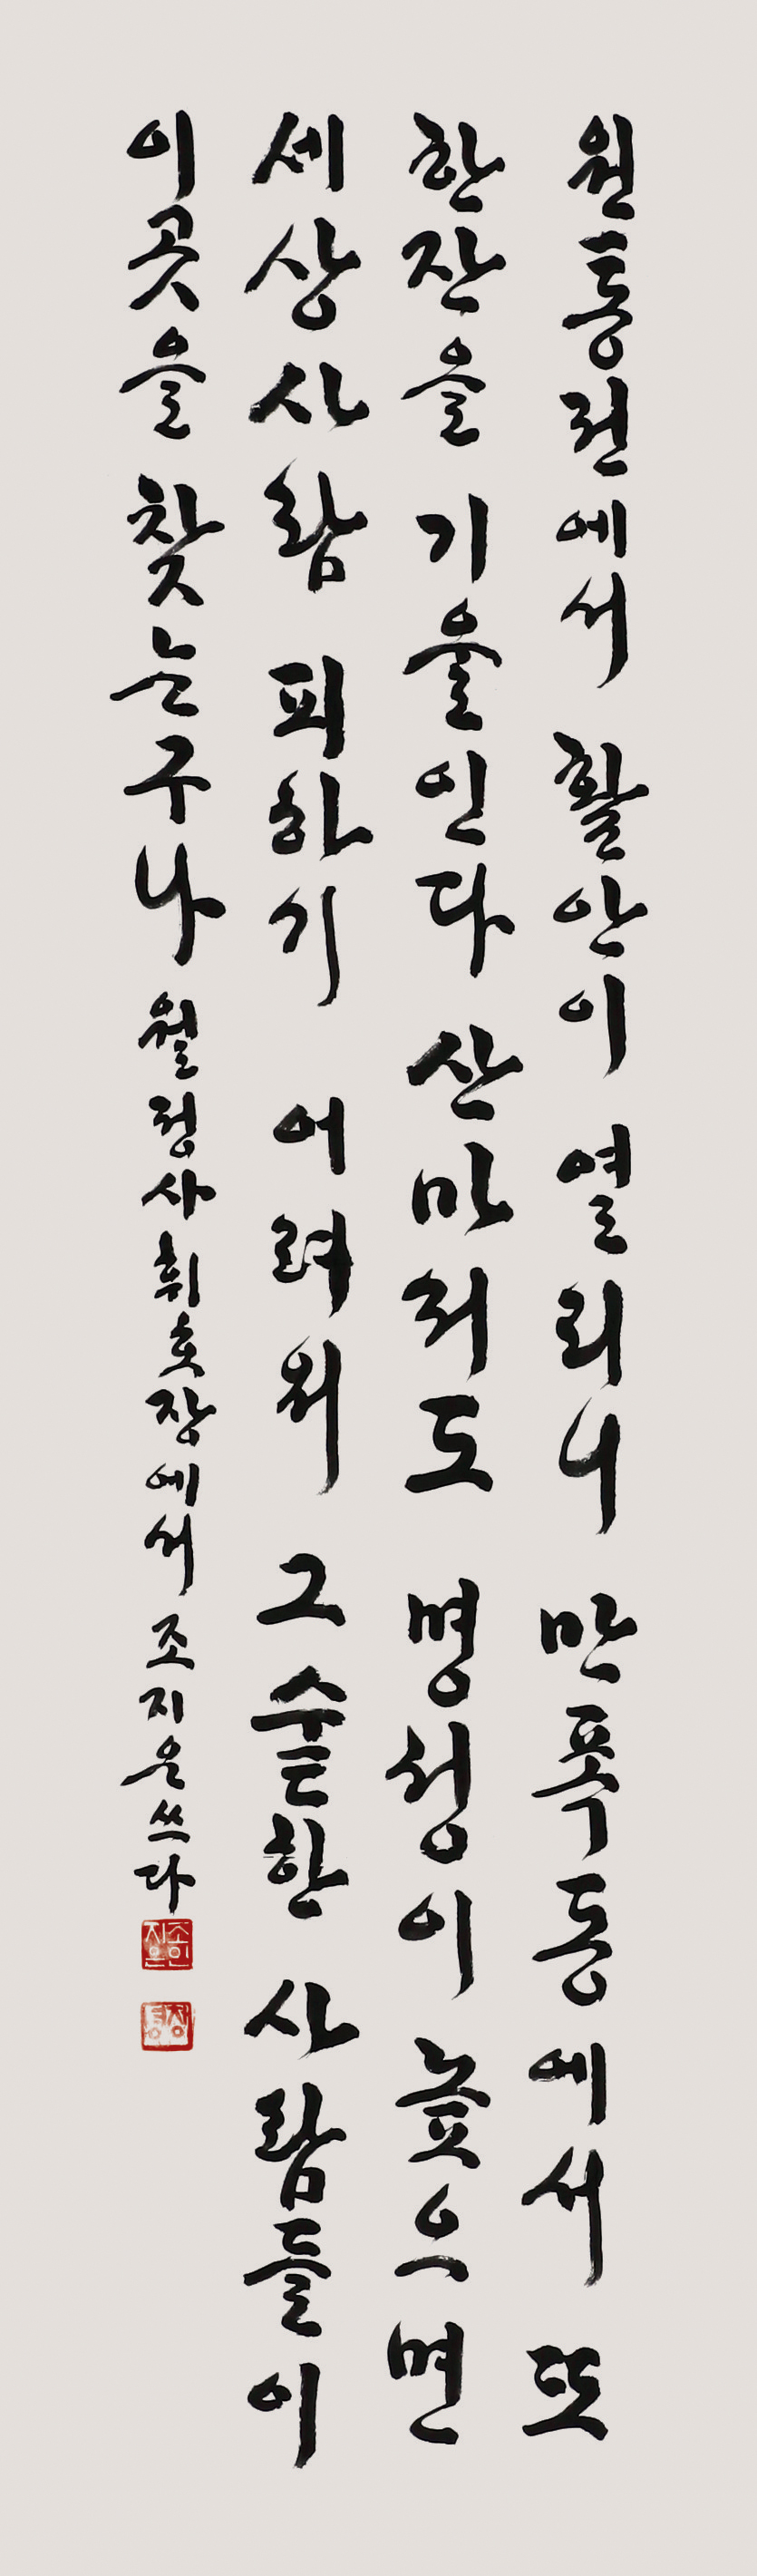 원통전에서 활안이 열리니 만폭동에서 또
한잔을 기울인다 산마리도 명성이 높으면
세상사람 피하기 어려워 그 숱한 사람들이
이곳을 찾는구나 월정사 취호장에서 조지은 쓰다
조지은인